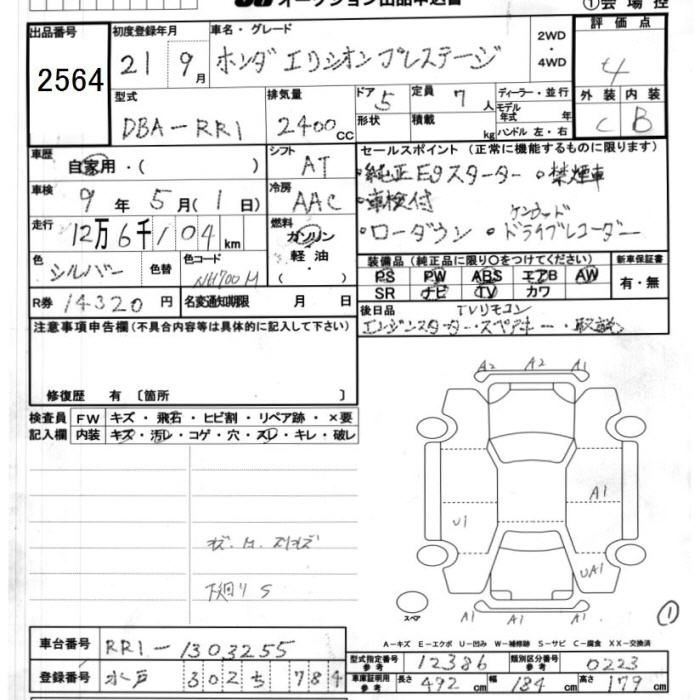 オークション出品申込書
①会場控
出品番号 2564
初度登録年月 21 9月
車名・グレード ホンダ エリシオン プレステージ
2WD・4WD
評価点 4
型式 DBA-RR1
排気量 2400cc
ドア 5 形状
定員 7人 積載 kg
ディーラー・並行
モデル年式 年
ハンドル 左・右
外装 C 内装 B
車歴 自家用・( )
シフト AT
セールスポイント (正常に機能するものに限ります)
・純正Egスターター ・禁煙車
・車検付 ケンウッド
・ローダウン ・ドライブレコーダー
車検 9年 5月(1日)
冷房 AAC
走行 12万6千104km
燃料 ガソリン・軽油・( )
色 シルバー 色替
色コード NH700M
装備品 (純正品に限り○をつけてください)
PS PW ABS エアB AW
SR ナビ TV カワ
新車保証書 有・無
R券 14320円
名変通知期限 月 日
後日品 TVリモコン
エンジンスターター・スペアキー・取説
注意事項申告欄(不具合内容等は具体的に記入して下さい)
修復歴 有 〔箇所 〕
検査員記入欄
FW キズ・飛石・ヒビ割・リペア跡・×要
内装 キズ・汚レ・コゲ・穴・スレ・キレ・破レ
下廻り S
A2 A2 A1
A1
U1
UA1
A1 A1 A1
スペア
①
A-キズ E-エクボ U-凹み W-補修跡 S-サビ C-腐食 XX-交換済
車台番号 RR1-1303255
登録番号 水戸 302 ち 784
型式指定番号 参考 12386
類別区分番号 参考 0223
車庫証明用 参考 長さ 492cm 幅 184cm 高さ 179cm